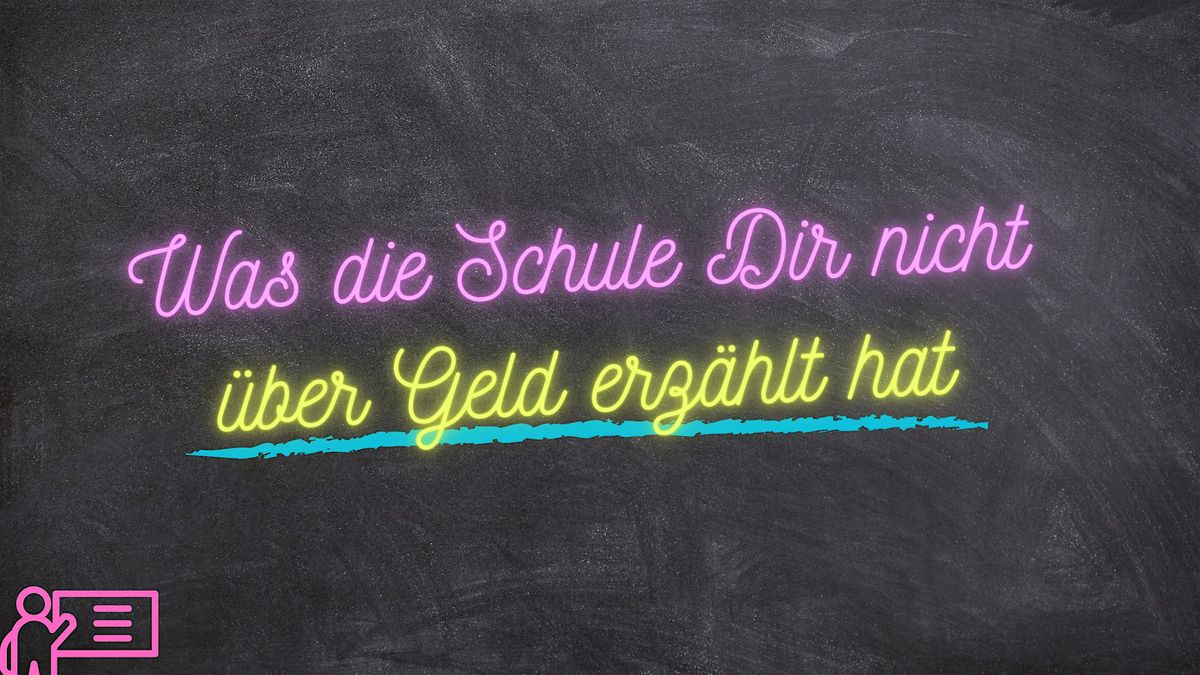 Was die Schule Dir nicht
über Geld erzählt hat